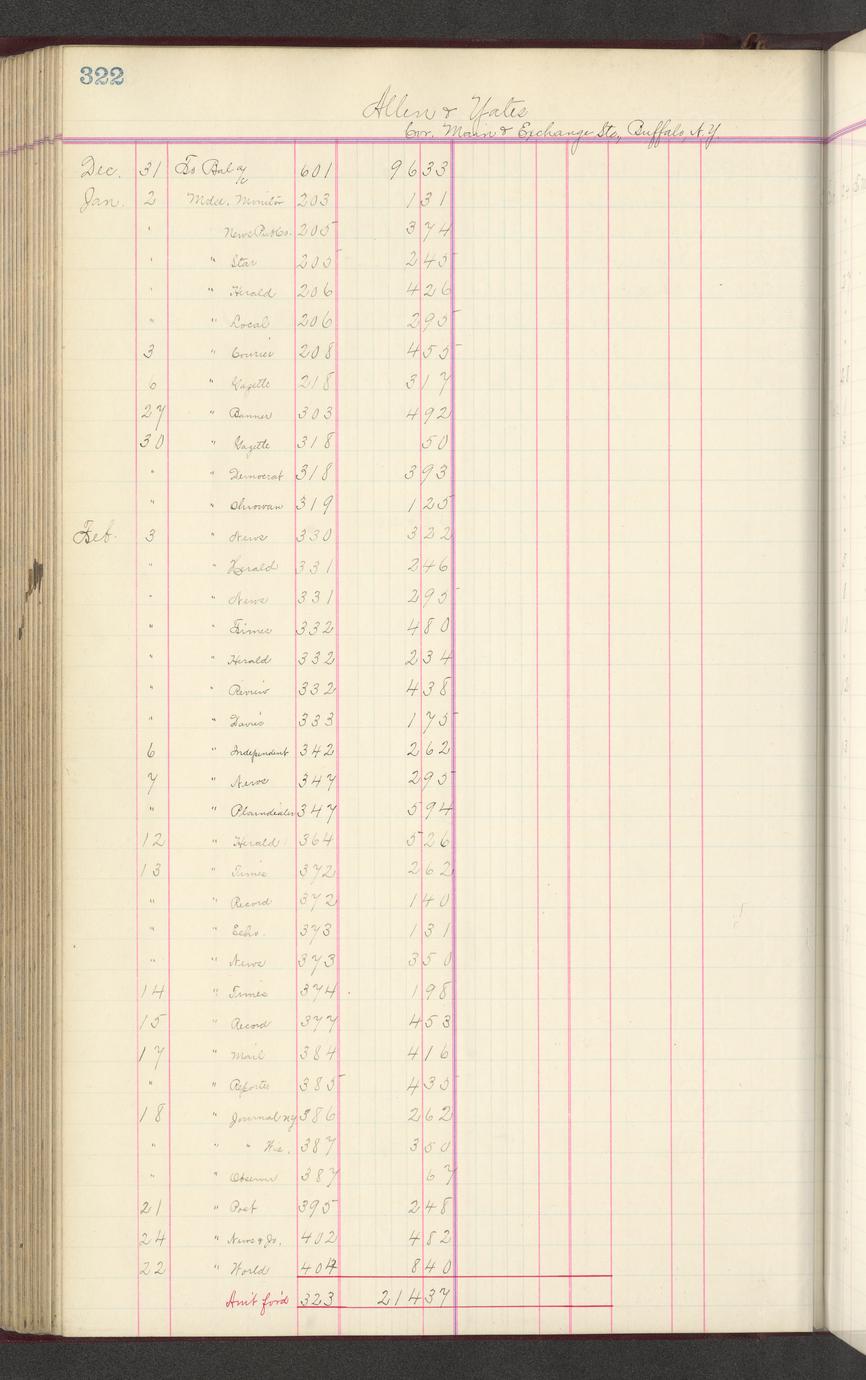 322
Allen & Yates
Cor. Main & Exchange Sts, Buffalo, N.Y.
Dec. 31 To Bal a/c 601 96 33
Jan. 2 Mdse. Monitor 203 1 31
" News Pub Co. 205 3 74
" " Star 205 2 45
" " Herald 206 4 26
" " Local 206 2 95
3 " Courier 208 4 55
6 " Gazette 218 3 17
27 " Banner 303 4 92
30 " Gazette 318 50
" " Democrat 318 3 93
" " 319 1 25
Feb. 3 " News 330 3 22
" " Herald 331 2 46
" " News 331 2 95
" " Times 332 4 80
" " Herald 332 2 34
" " Review 332 4 38
" " Davis 333 1 75
6 " Independent 342 2 62
7 " News 347 2 95
" " Plaindealer 347 5 94
12 " Herald 364 5 26
13 " Times 372 2 62
" " Record 372 1 40
" " Echo. 373 1 31
" " News 373 3 50
14 " Times 374 1 98
15 " Record 377 4 53
17 " Mail 384 4 16
" " Reporter 385 4 35
18 " Journal NY 386 2 62
" " " Wis. 387 3 50
" " Observer 387 67
21 " Post 395 2 48
24 " News & Jo. 402 4 82
22 " World 404 8 40
Amt for'd 323 214 37